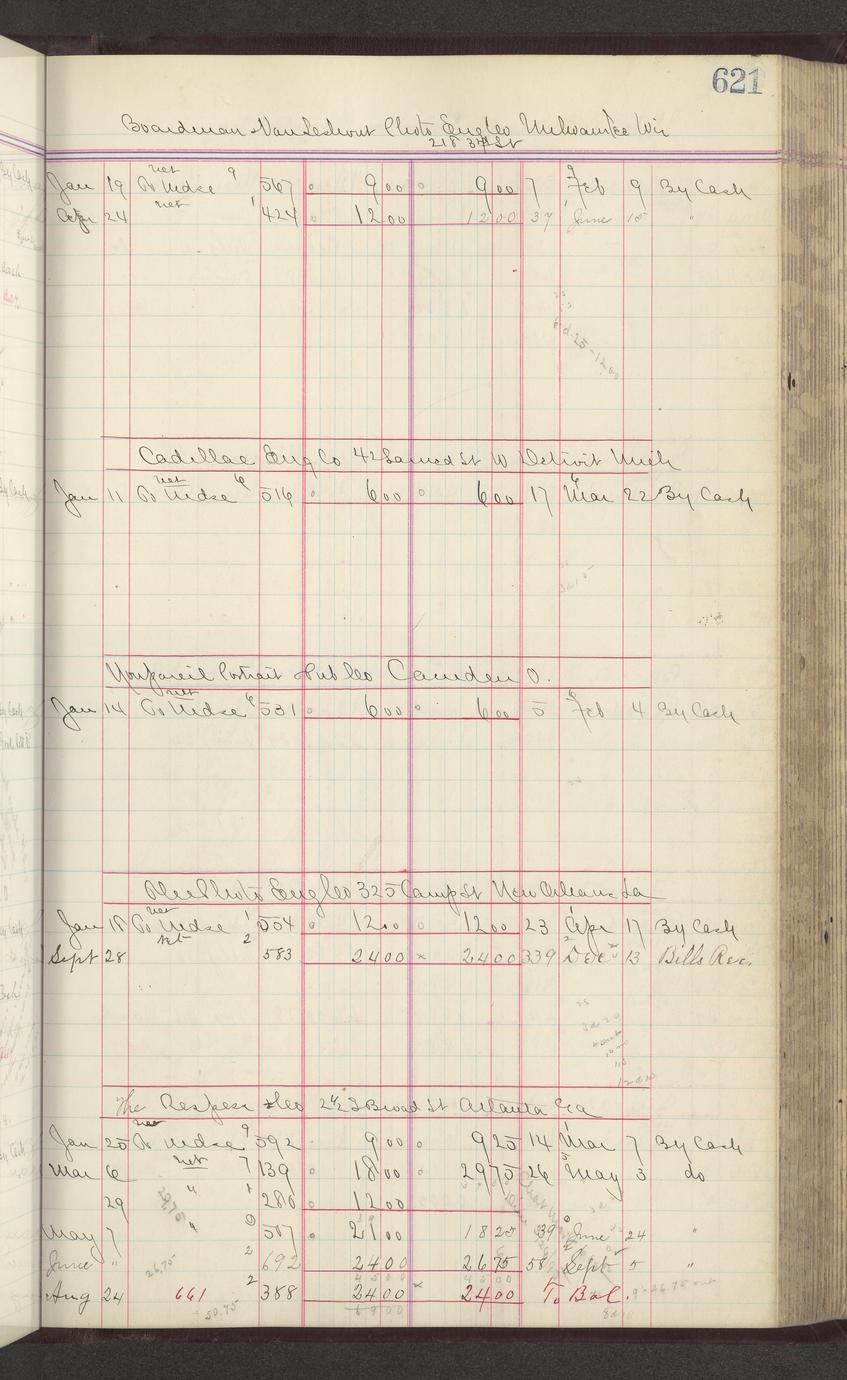 621
Boardman Photo Eng Co Milwaukee Wis
218 3rd St
net
Jan 19 To Mdse 9 567 9 00 9 00 7 Feb 9 By Cash
net
Apr 24 1 424 12 00 12 00 37 June 15 "
Cadillac Eng Co 42 Larned St W Detroit Mich
net
Jan 11 To Mdse 6 516 6 00 6 00 17 Mar 22 By Cash
Nonpareil Portrait Pub Co Camden O.
net
Jan 14 To Mdse 6 531 6 00 6 00 5 Feb 4 By Cash
Photo Eng Co 325 Camp St New Orleans La
net
Jan 18 To Mdse 1 554 12 00 12 00 23 Apr 17 By Cash
net
Sept 28 2 583 24 00 x 24 00 339 Dec 13 Bills Rec.
The Co Broad St Atlanta Ga
net
Jan 25 To Mdse 9 592 9 00 9 25 14 Mar 7 By Cash
Mar 6 net 7 139 18 00 29 75 26 May 3 do
29 " 1 280 12 00
May 7 " 507 21 00 18 25 39 June 24 "
June " 2 692 24 00 26 75 58 Sept 5 "
26.75
Aug 24 661 2 388 24 00 x 24 00 To Bal.